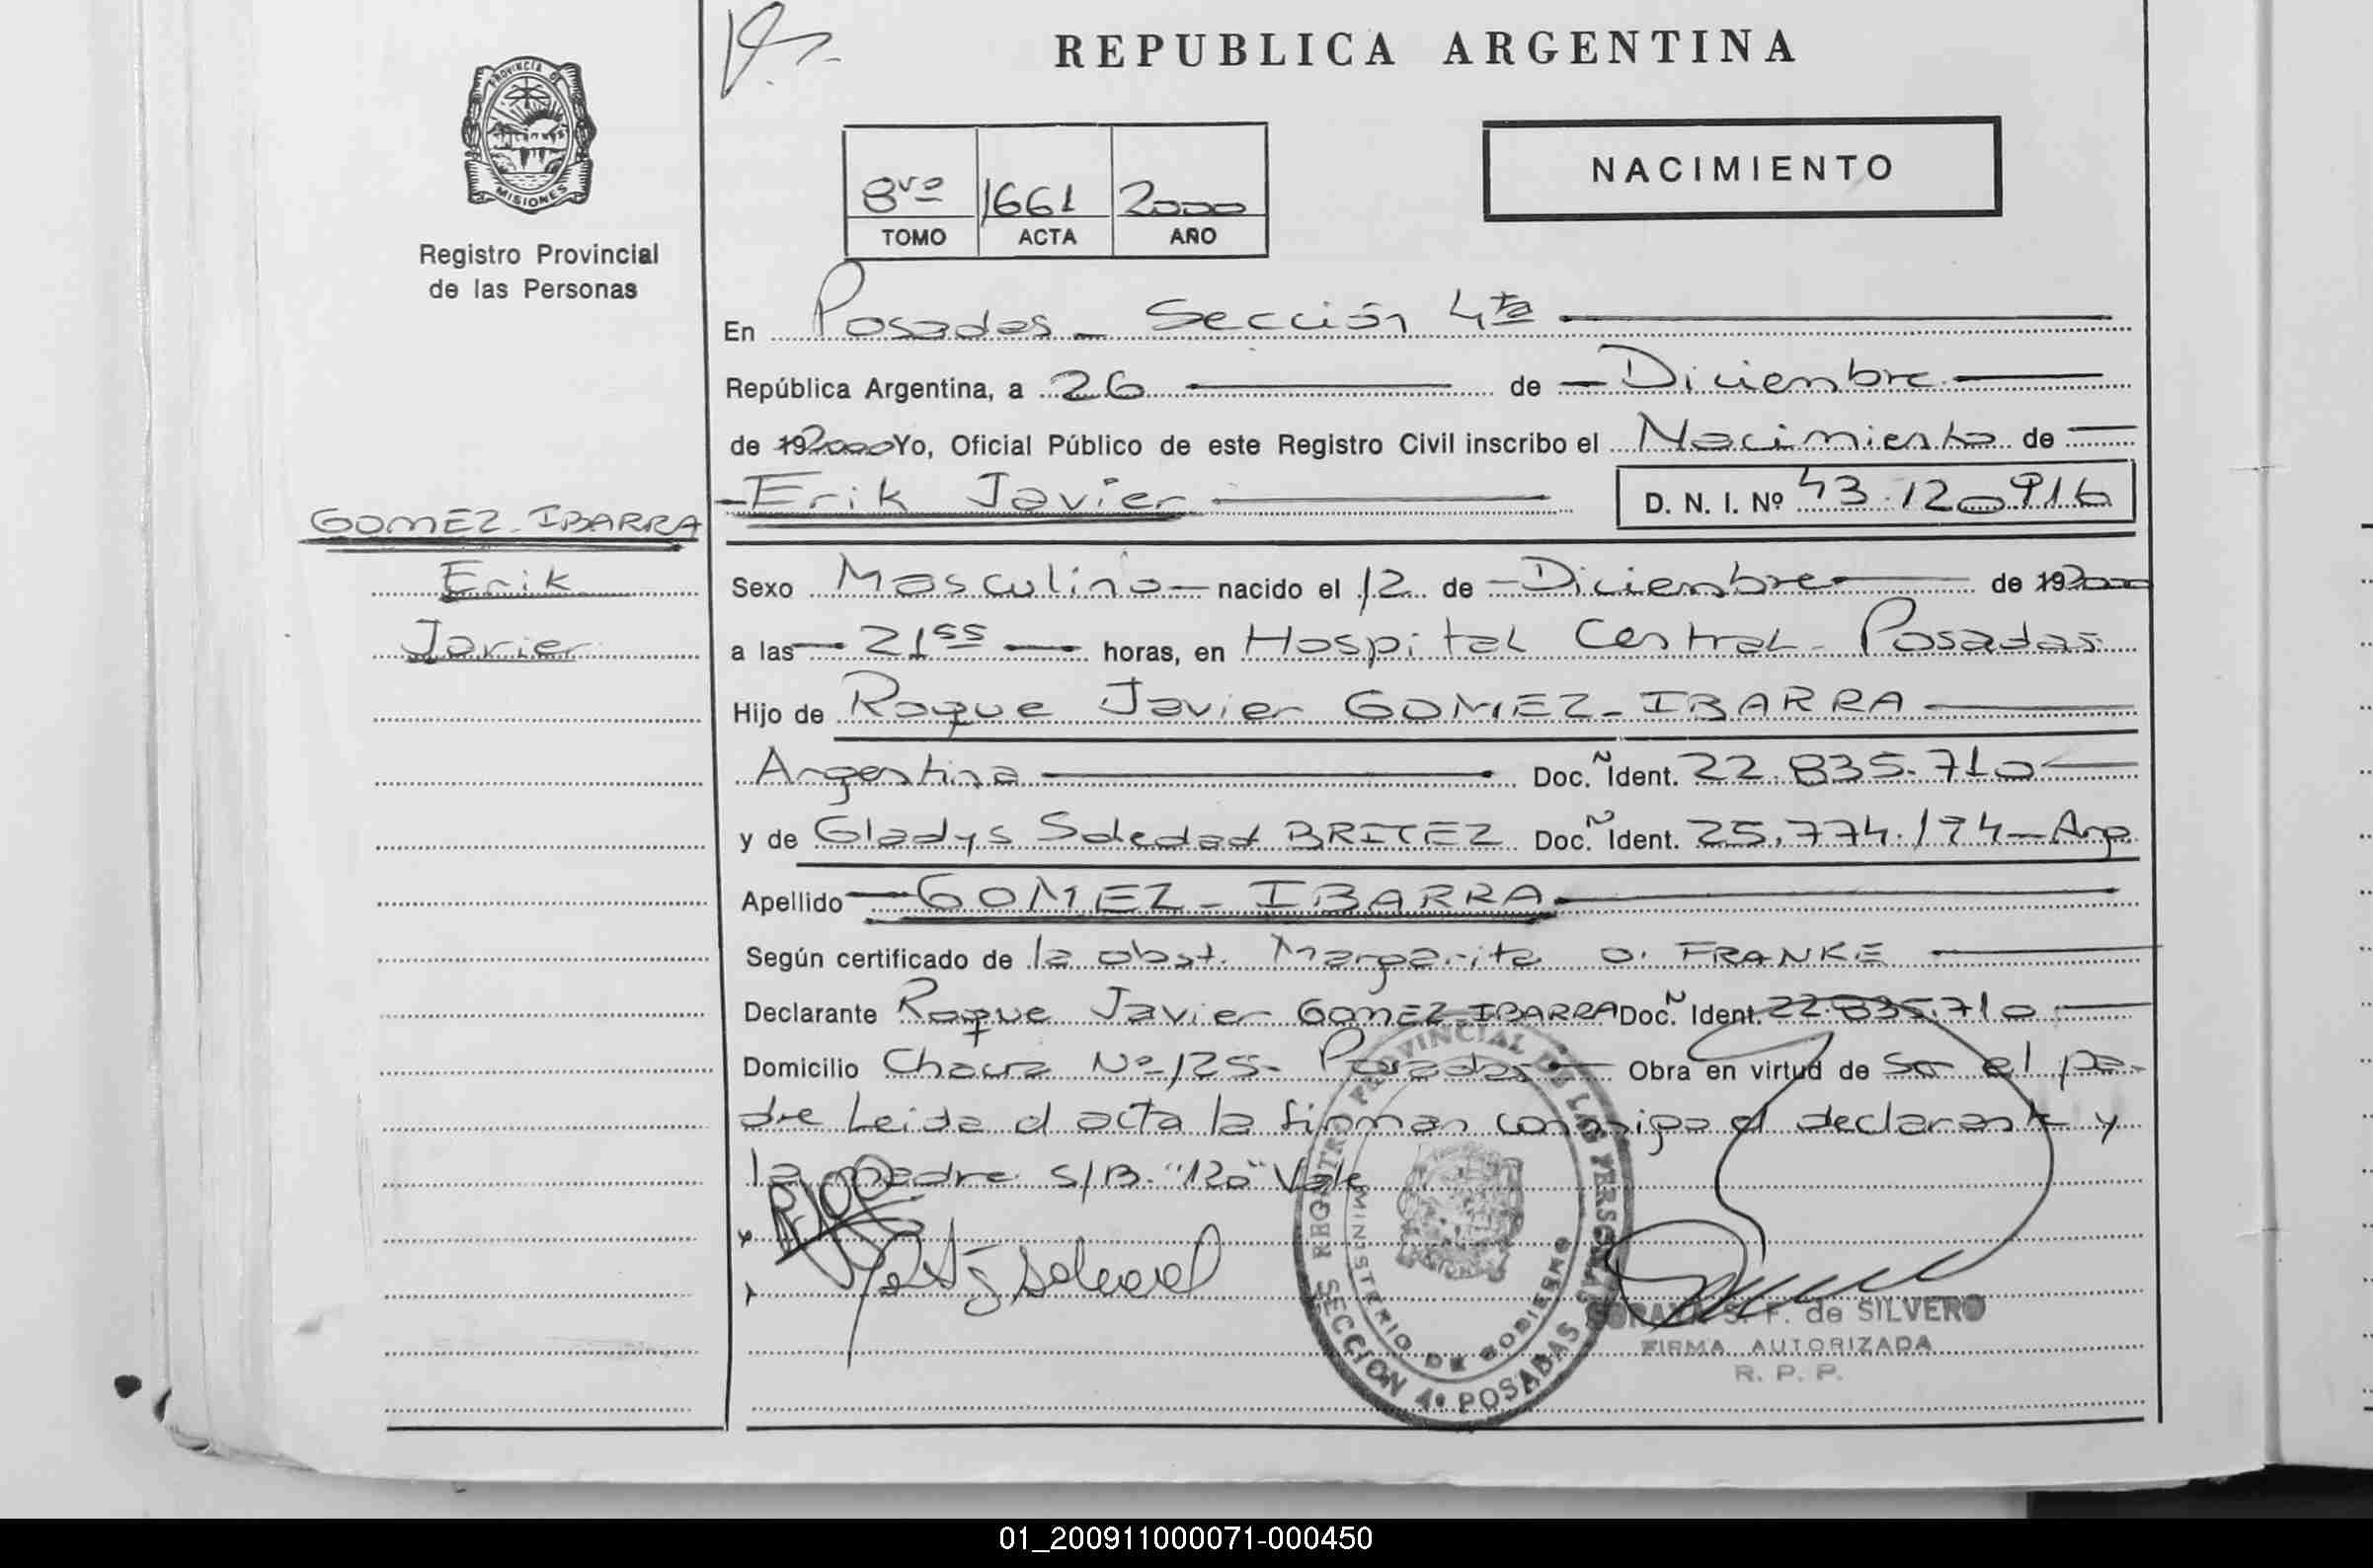 REPUBLICA ARGENTINA
PROVINCIA DE MISIONES
Registro Provincial
de las Personas
8vo 1661 2000
TOMO ACTA AÑO
NACIMIENTO
En Posadas - Sección 4ta
República Argentina, a 26 de Diciembre
de 192000 Yo, Oficial Público de este Registro Civil inscribo el Nacimiento de
Erik Javier D. N. I. Nº 43.120916
GOMEZ-IBARRA
Erik
Javier
Sexo Masculino nacido el 12 de Diciembre de 192000
a las 21 55 horas, en Hospital Central - Posadas
Hijo de Roque Javier GOMEZ-IBARRA
Argentina Doc. Ñ Ident. 22.835.710
y de Gladys Soledad BRITEZ Doc. Ñ Ident. 25.774.194 - Arg
Apellido GOMEZ-IBARRA
Según certificado de la obst. Margarita O. FRANKE
Declarante Roque Javier GOMEZ-IBARRA Doc. Ñ Ident. 22.835.710
Domicilio Chacra Nº 125 - Posadas Obra en virtud de ser el pa-
dre Leida el acta la firman conmigo el declarante y
la madre S/B. "120" Vale
soledad
REGISTRO PROVINCIAL DE LAS PERSONAS
MINISTERIO DE GOBIERNO
SECCION 4ª POSADAS
SORAYA S. F. de SILVERO
FIRMA AUTORIZADA
R. P. P.
01_200911000071-000450